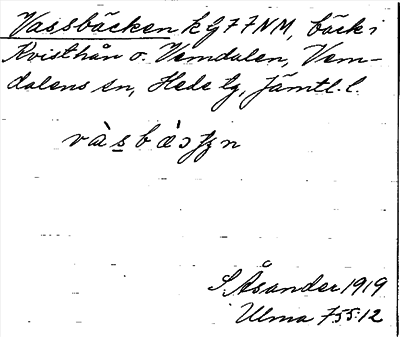 Vassbäcken k G 77NM, bäck i
Kvisthån o. Vemdalen, Vem-
dalens sn, Hede tg, Jämtl. l.
S Åsander 1919
Ulma 755:12